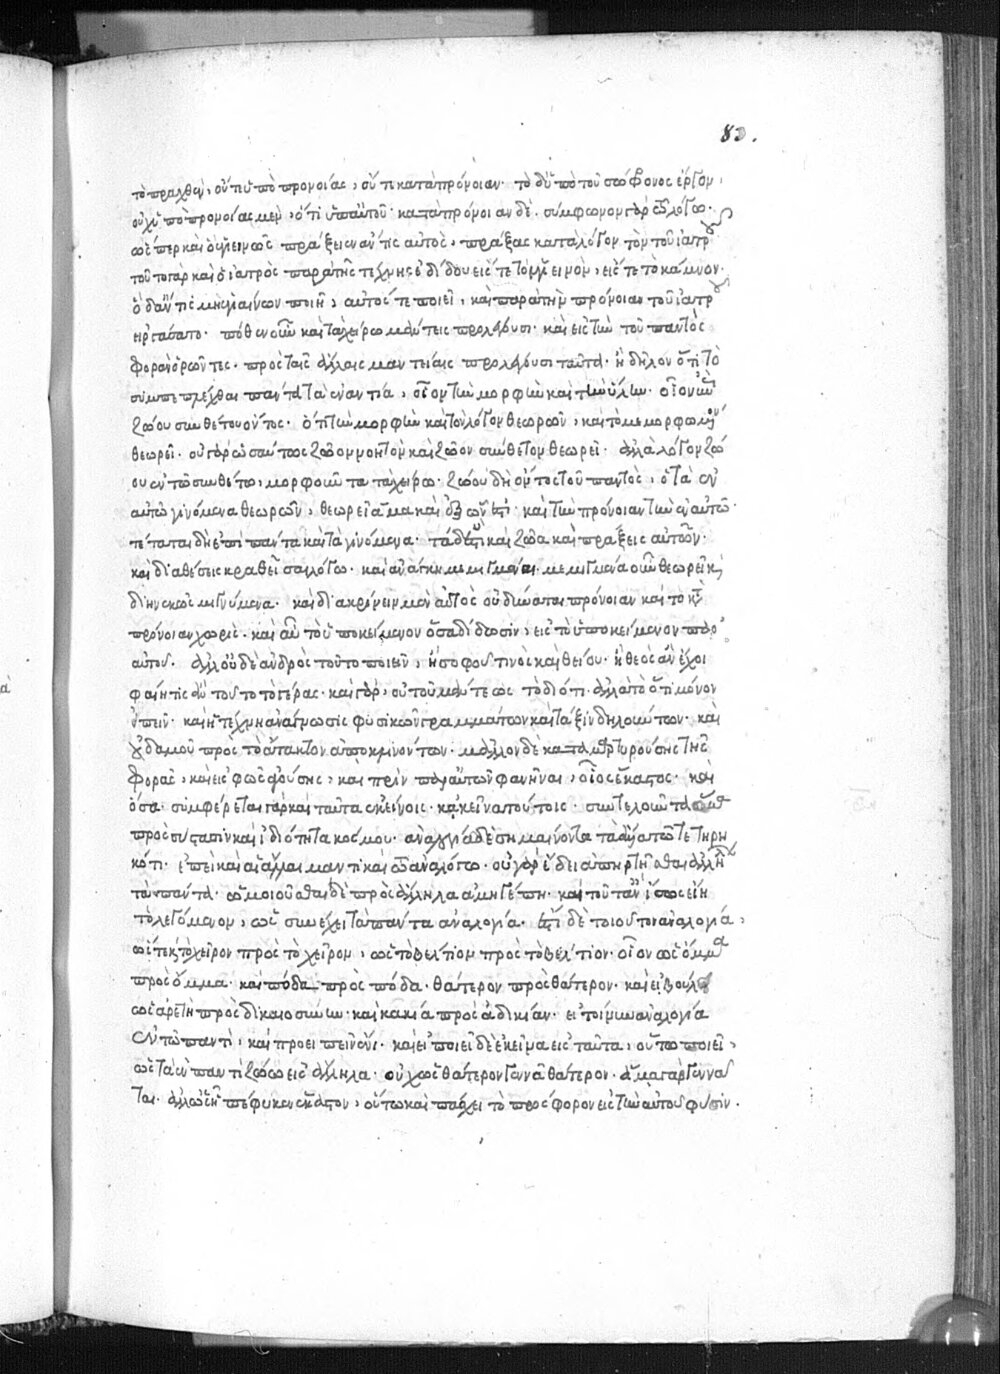 τὸ πραχθὲν, οὔτε ὑπὸ προνοίας, οὔτε κατὰ πρόνοιαν· τὸ δ' ὑπὸ τοῦ σώφρονος ἔργον,
οὐχ' ὑπὸ προνοίας μὲν, ὅτι ὑπ' αὐτοῦ· κατὰ πρόνοιαν δὲ· σύμφωνον γὰρ τῶ λόγω·
ὥσπερ καὶ ὃ ὑγιεινῶς πράξειεν ἄν τις αὐτὸς, πράξας κατὰ λόγον τὸν τοῦ ἰατροῦ
τοῦτο γὰρ καὶ ὁ ἰατρὸς παρὰ τῆς τέχνης ἐδίδου εἴς τε τὸ ὑγιεινὸν, εἴς τε τὸ κάμνον·
ὃ δ' ἄν τις μὴ ὑγιαῖνον ποιῆ, αὐτός τε ποιεῖ, καὶ παρὰ τὴν πρόνοιαν τοῦ ἰατροῦ
εἰργάσατο· πόθεν οὖν καὶ τὰ χείρω μάντεις προλέγουσι· καὶ εἰς τὴν τοῦ παντὸς
φορὰν ὁρῶντες· πρὸς ταῖς ἄλλαις μαντείαις προλέγουσι ταῦτα· ἢ δῆλον ὅτι τὸ
συμπεπλέχθαι πάντα τὰ ἐναντία, οἷον τὴν μορφὴν καὶ τὴν ὕλην· οἷον
ζώου συνθέτου ὄντος· ὅτι τὴν μορφὴν καὶ τὸν λόγον θεωρῶν, καὶ τὸ μεμορφωμένον
θεωρεῖ· οὐ γὰρ ὡσαύτως ζῶον νοητὸν καὶ ζῶον σύνθετον θεωρεῖ· ἀλλὰ λόγον ζώ
ου ἐν τῶ συνθέτω, μορφοῦντα τὰ χείρω· ζώου δὴ ὄντος τοῦ παντὸς, ὁ τὰ ἐν
αὐτῶ γινόμενα θεωρῶν, θεωρεῖ ἅμα καὶ ἐξ ὧν ἐστὶ· καὶ τὴν πρόνοιαν τὴν ἐν αὐτῶ·
τέταται δὴ ἐπὶ πάντα καὶ τὰ γινόμενα· τὰ δ' ἐστὶ καὶ ζῶα καὶ πράξεις αὐτῶν·
καὶ διαθέσεις κραθεῖσαι λόγω· καὶ ἀνάγκη μεμιγμέναι· μεμιγμένα οὖν θεωρεῖ καὶ
διηνεκῶς μιγνύμενα· καὶ διακρίνειν μὲν αὐτὸς οὐ δύναται πρόνοιαν καὶ τὸ κατὰ
πρόνοιαν χωρὶς· καὶ αὖ τὸ ὑποκείμενον ὅσα δίδωσιν, εἰς τὸ ὑποκείμενον παρ'
αὐτοῦ. ἀλλ' οὐδὲ ἀνδρὸς τοῦτο ποιεῖν, ἢ σοφοῦ τινὸς καὶ θείου· ἢ θεὸς ἂν ἔχοι
φαίη τις ἂν τοῦτο τὸ γέρας· καὶ γὰρ, οὐ τοῦ μάντεως τὸ διότι· ἀλλὰ τὸ ὅτι μόνον
εἰπεῖν· καὶ ἡ τέχνη ἀνάγνωσις φυσικῶν γραμμάτων καὶ τάξιν δηλούντων· καὶ
οὐδαμοῦ πρὸς τὸ ἄτακτον ἀποκλινόντων· μᾶλλον δὲ καταμαρτυρούσης τῆς
φορᾶς, καὶ εἰς φῶς ἀγούσης, καὶ πρὶν παρ' αὐτῶν φανῆναι, οἷος ἕκαστος· καὶ
ὅσα· συμφέρεται γὰρ καὶ ταῦτα ἐκείνοις· κἀκεῖνα τούτοις· συντελοῦντα ἅμα
πρὸς σύστασιν καὶ ἀιδιότητα κόσμου· ἀναλογία δὲ σημαίνοντα τὰ ἄλλα τῶ τετηρη
κότι· ἐπεὶ καὶ αἱ ἄλλαι μαντικαὶ τῶ ἀναλόγω· οὐ γὰρ ἔδει ἀπηρτῆσθαι ἀλλήλων
τὰ πάντα· ὡμοιοῦσθαι δὲ πρὸς ἄλληλα ἀμηγέπη· καὶ τοῦτ' ἂν ἴσως εἴη
τὸ λεγόμενον, ὡς συνέχει τὰ πάντα ἀναλογία· ἔστι δὲ τοιοῦτον ἀναλογία,
ὥστε τὸ χεῖρον πρὸς τὸ χεῖρον, ὡς τὸ βέλτιον πρὸς τὸ βέλτιον· οἷον ὡς ὄμμα
πρὸς ὄμμα· καὶ πόδα πρὸς πόδα· θάτερον πρὸς θάτερον· καὶ εἰ βούλει
ὡς ἀρετὴ πρὸς δικαιοσύνην· καὶ κακία πρὸς ἀδικίαν· εἰ τοίνυν ἀναλογία
ἐν τῶ παντὶ, καὶ προειπεῖν ἔνι· καὶ εἰ ποιεῖ δὲ ἐκεῖνα εἰς ταῦτα, οὕτω ποιεῖ,
ὡς τὰ ἐν παντὶ ζώω εἰς ἄλληλα· οὐχ ὡς θάτερον γεννᾶ θάτερον· ἅμα γὰρ γεννᾶ
ται· ἀλλ' ὡς ἧ πέφυκεν ἕκαστον, οὕτω καὶ πάσχει τὸ πρόσφορον εἰς τὴν αὐτοῦ φύσιν·